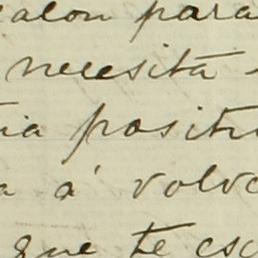 alon para
necesita
ia positi
a á volve
que te esc